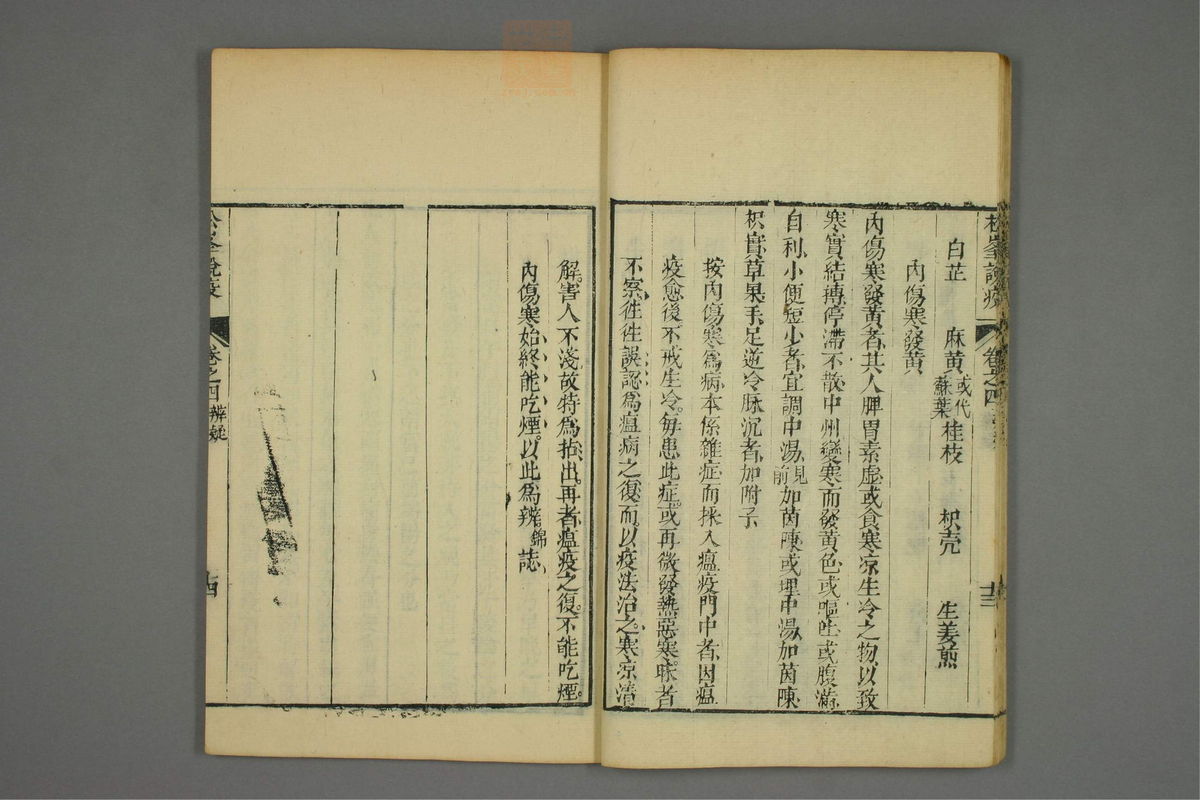 松峯說疫 卷之四 十三
白芷 麻黃 或代蘇葉 桂枝 枳壳 生姜煎
內傷寒發黃
內傷寒發黃者其人脾胃素虛或食寒凉生冷之物以致
寒實結搏停滯不散中州變寒而發黃色或嘔吐或腹滿
自利小便短少者宜調中湯見前加茵陳或理中湯加茵陳
枳實草果手足逆冷脉沉者加附子
按內傷寒爲病本係雜症而採入瘟疫門中者因瘟
疫愈後不戒生冷每患此症或再微發熱惡寒昧者
不察徃徃誤認爲瘟病之復而以疫法治之寒凉清
解害人不淺故特爲拈出再者瘟疫之復不能吃煙
內傷寒始終能吃煙以此爲辨錦誌
松峯說疫 卷之四 辨疑 十四